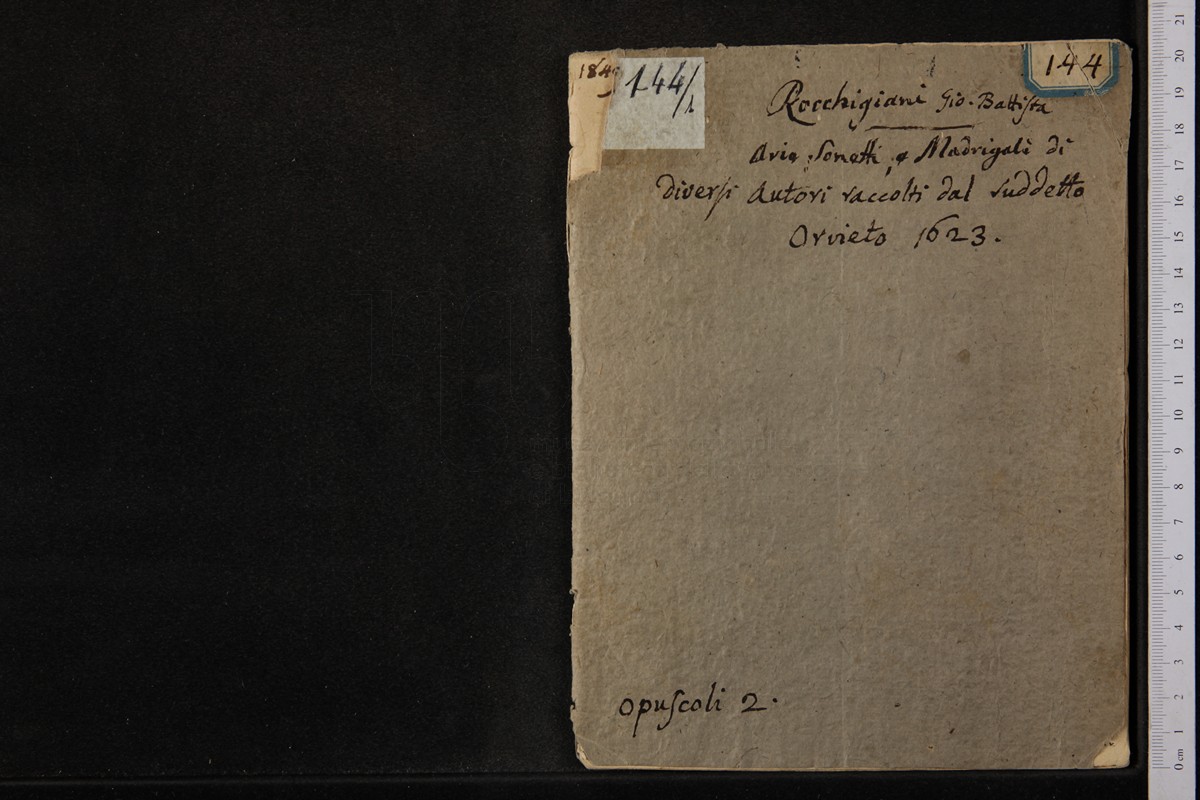 144/1
144
Rocchigiani Gio. Battiſta
Arie, Sonetti, e Madrigali di
diverſi Autori raccolti dal suddetto
Orvieto 1623.
opuſcoli 2.
0 cm 1 2 3 4 5 6 7 8 9 10 11 12 13 14 15 16 17 18 19 20 21